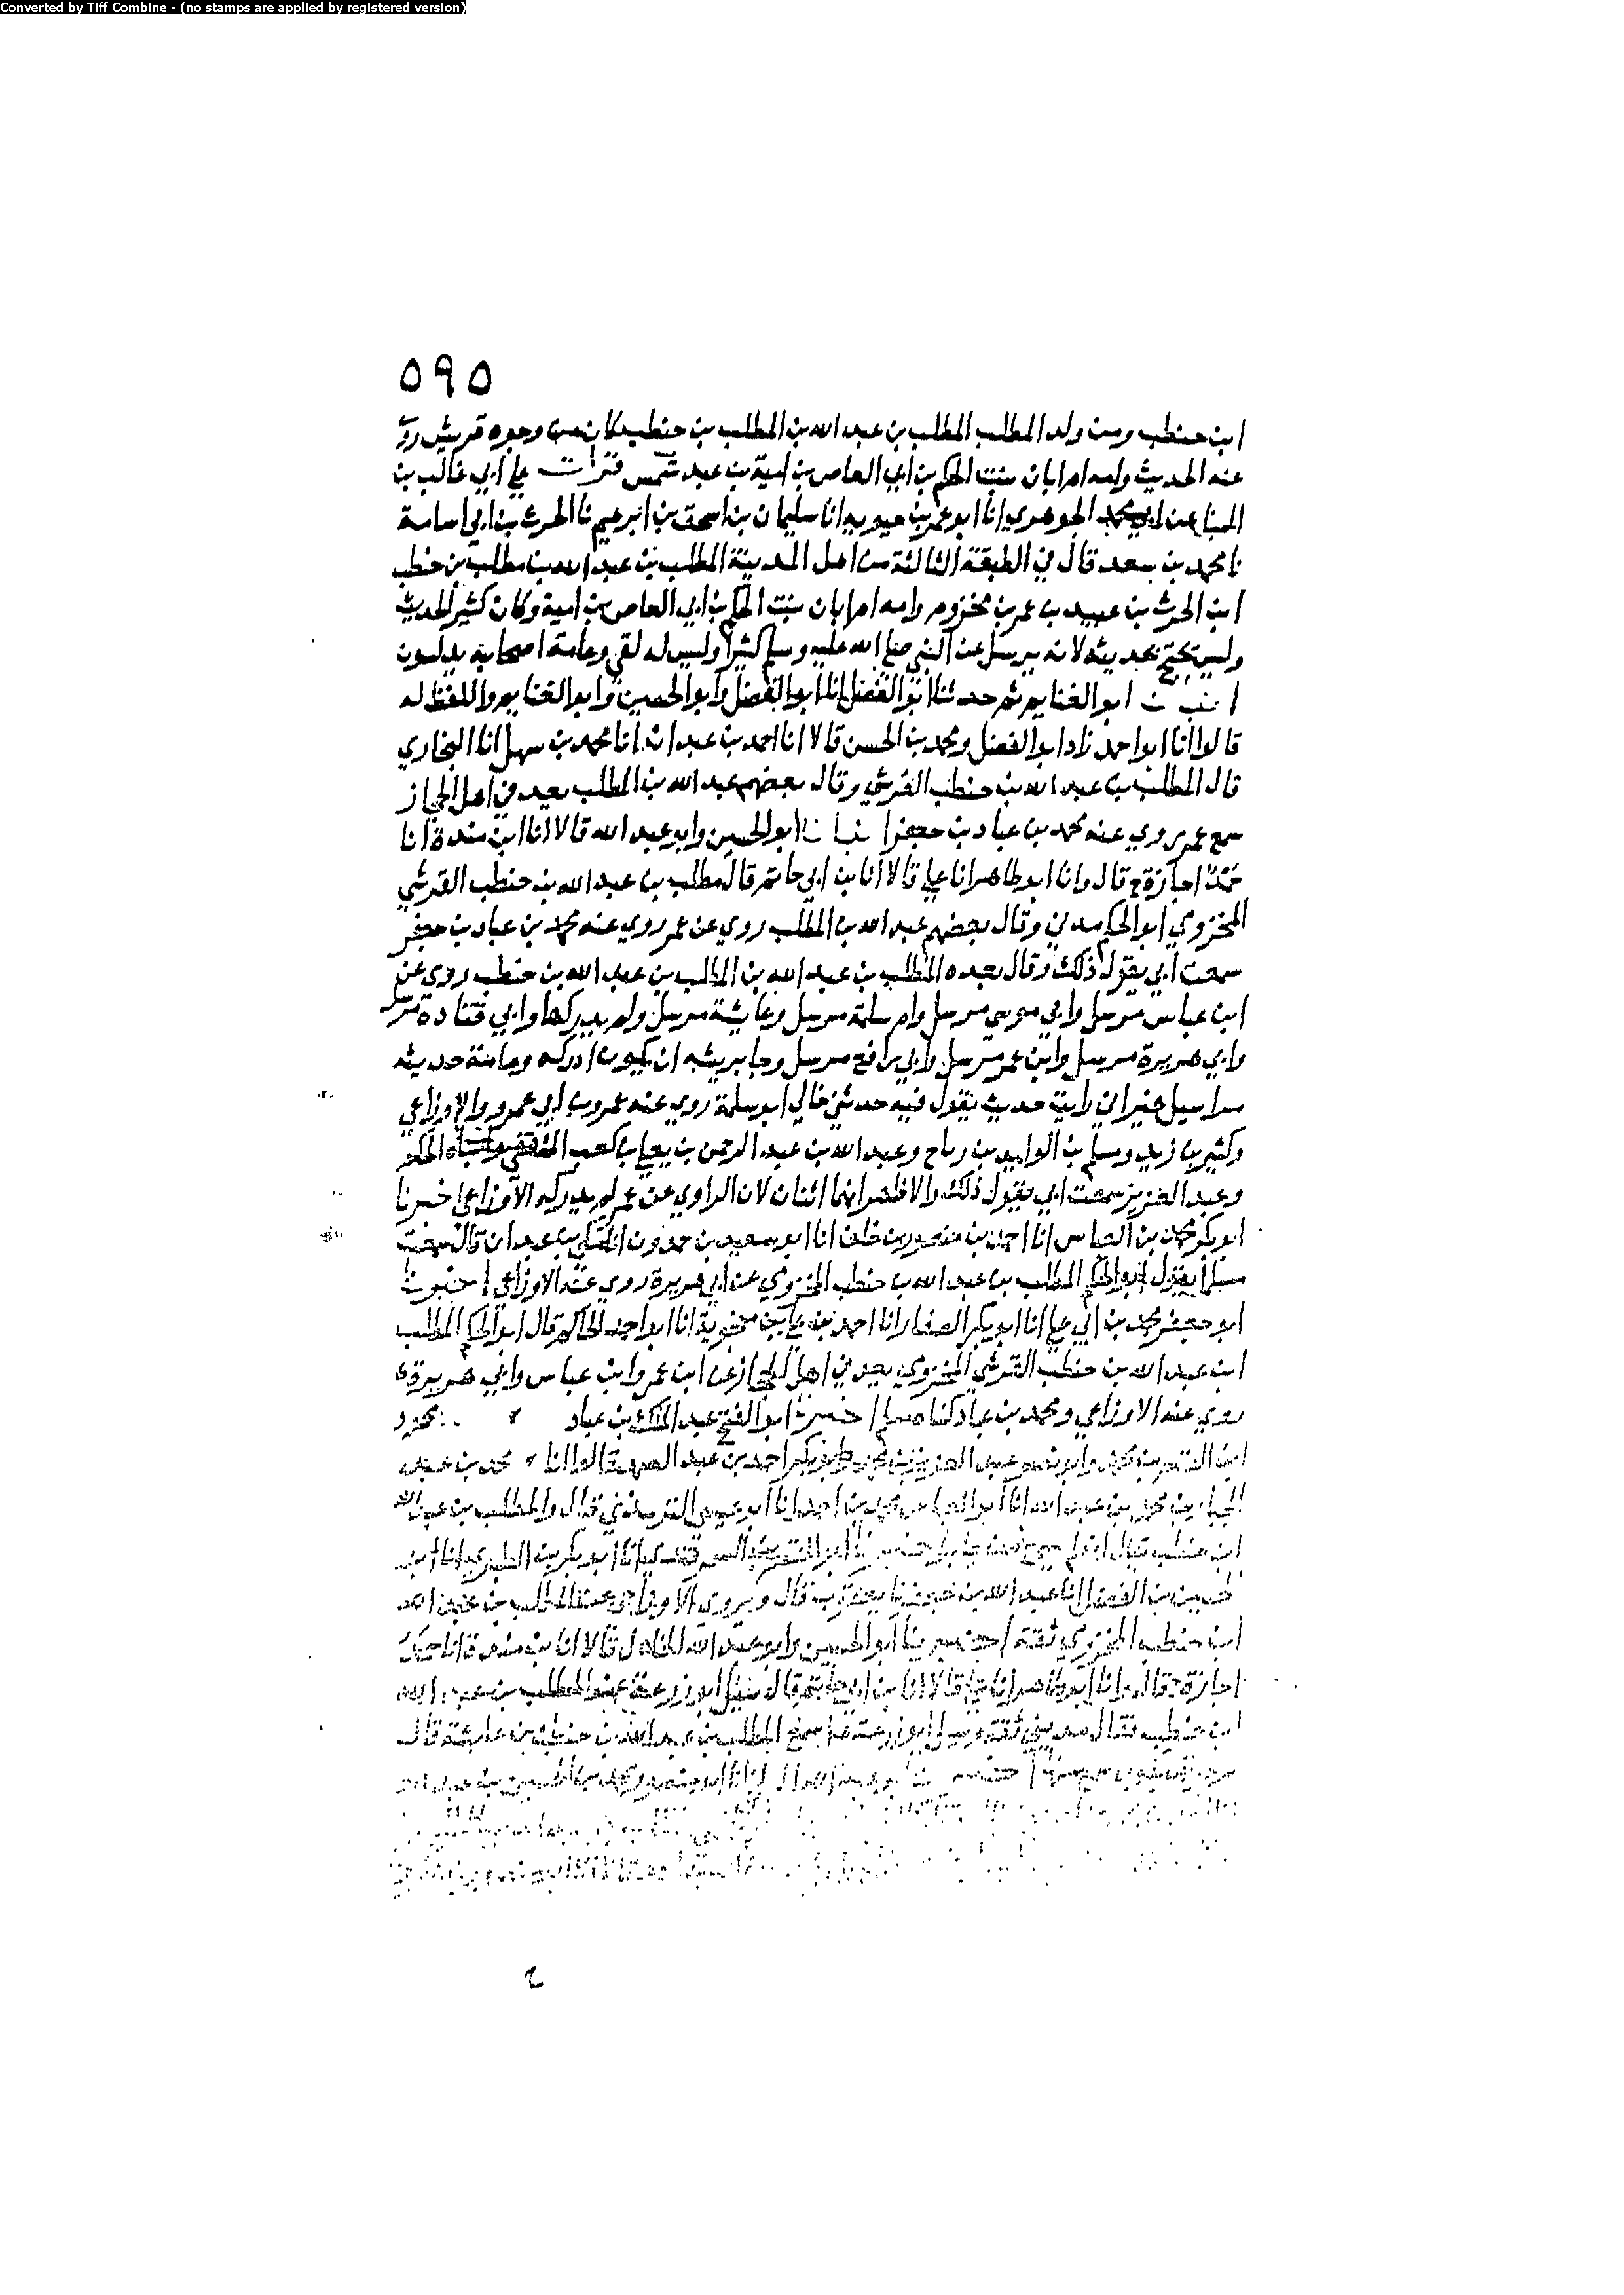 Converted by Tiff Combine - (no stamps are applied by registered version)
٥٩٥
ابن حنطب ومن ولد المطلب المطلب بن عبد الله بن المطلب بن حنطب كان من وجوه قريش روى
عنه الحديث وامه ام ابان بنت الحكم بن ابي العاص بن امية بن عبد شمس قرات علي ابي غالب بن
البنا عن ابي محمد الجوهري انا ابو عمر بن حيويه انا سليمان بن اسحق بن ابرهيم نا الحرث بن ابي اسامة
نا محمد بن سعد قال في الطبقة الثالثة من اهل المدينة المطلب بن عبد الله بن مطلب بن حنطب
ابن الحرث بن عبيد بن عمر بن مخزوم وامه ام ابان بنت الحكم بن ابي العاص بن امية وكان كثير الحديث
وليس يحتج بحديثه لانه يرسل عن النبي صلى الله عليه وسلم كثيرا وليس له لقي وعامة اصحابه يدلسون
انبـ نا ابو الغنايم ثم حدثنا ابو الفضل انا ابو الفضل وابو الحسين وابو الغنايم واللفظ له
قالوا انا ابو احمد زاد ابو الفضل ومحمد بن الحسن قالا انا احمد بن عبدان انا محمد بن سهل انا البخاري
قال المطلب بن عبد الله بن حنطب القرشي وقال بعضهم عبد الله بن المطلب يعد في اهل الحجاز
سمع عمر روي عنه محمد بن عباد بن جعفر انبـا نا ابو الحسين وابو عبد الله قالا انا ابن مندة انا
حمد اجازة ح قال وانا ابو طاهر انا علي قالا انا بن ابي حاتم قال مطلب بن عبد الله بن حنطب القرشي
المخزومي ابو الحكم مدني وقال بعضهم عبد الله بن المطلب روي عن عمر روي عنه محمد بن عباد بن جعفر
سمعت ابي يقول ذلك وقال بعده المطلب بن عبد الله بن المطلب بن عبد الله بن حنطب روى عن
ابن عباس مرسل وابي موسى مرسل وام سلمة مرسل وعايشة مرسل ولم يدركها وابي قتادة مرسل
وابي هريرة مرسل وابن عمر مرسل وابي رافع مرسل وجابر يشبه ان يكون ادركه وعامة حديثه
مراسيل غير اني رايت حديث يقول فيه حدثني خالي ابو سلمة روي عنه عمرو بن ابي عمرو والاوزاعي
وكثير بن زيد ومسلم بن الوليد بن رباح وعبد الله بن عبد الرحمن بن يعلي بن كعب الثقفي وابناه الحكم
وعبد العزيز سمعت ابي يقول ذلك والاظهر انهما اثنان لان الراوي عن عمر لم يدركه الاوزاعي اخبرنا
ابو بكر محمد بن العباس انا احمد بن منصور بن خلف انا ابو سعيد بن حمدون انا مكي بن عبدان قال سمعت
مسلما يقول ابو الحكم المطلب بن عبد الله بن حنطب المخزومي عن ابي هريرة روي عنه الاوزاعي اخبرنا
ابو جعفر محمد بن ابي علي انا ابو بكر الصفار انا احمد بن علي بن منجويه انا ابو احمد الحاكم قال ابو الحكم المطلب
ابن عبد الله بن حنطب القرشي المخزومي يعد في اهل الحجاز عن ابن عمر وابن عباس وابي هريرة
روي عنه الاوزاعي ومحمد بن عباد كناه مسلم اخبرنا ابو الفتح عبد الملك بن عباد محمود
ابن القسم بن محمد وابو نصر عبد العزيز بن محمد وابو بكر احمد بن عبد الصمد قالوا انا محمد بن عبد
الجبار بن محمد بن عبد الله انا ابو العباس محمد بن احمد انا ابو عيسى الترمذي قال والمطلب بن عبد الله
ابن حنطب يقال انه لم يسمع من جابر اخبرنا ابو القسم بن السمرقندي انا ابو بكر بن الطبري انا ابو
الحسين بن الفضل انا عبد الله بن جعفر نا يعقوب قال ويروي الاوزاعي عن المطلب بن عبد الله
ابن حنطب المخزومي ثقة اخبرنا ابو الحسين وابو عبد الله الخلال قالا انا بن مندة انا حمد
اجازة ح قال وانا ابو طاهر انا علي قالا انا بن ابي حاتم قال سئل ابو زرعة عن المطلب بن عبد الله
ابن حنطب فقال مديني ثقة وسئل ابو زرعة هل سمع المطلب بن عبد الله بن حنطب من عايشة قال